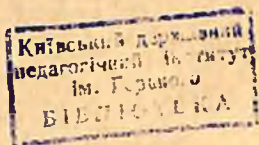 Київський державний
педагогічний інститут
ім. Горького
БІБЛІОТЕКА